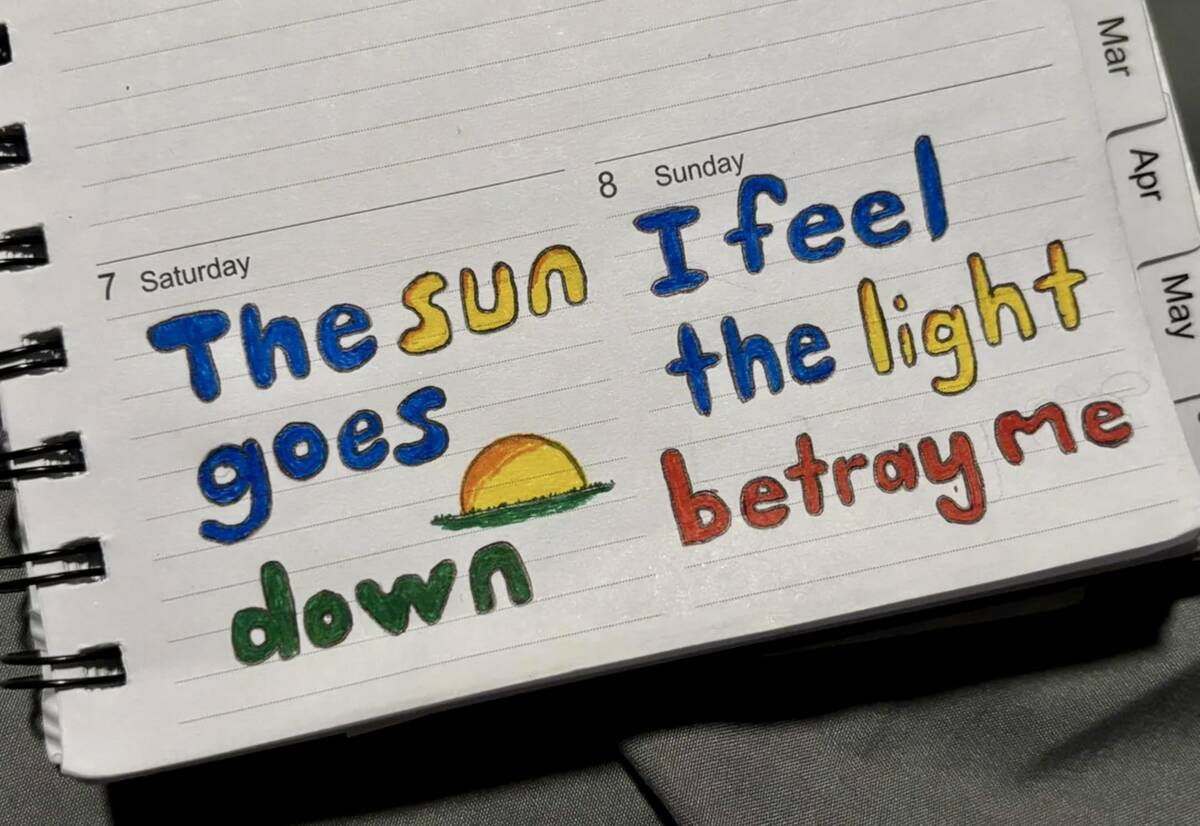 7 Saturday
The sun
goes
down
8 Sunday
I feel
the light
betray me
Mar
Apr
May